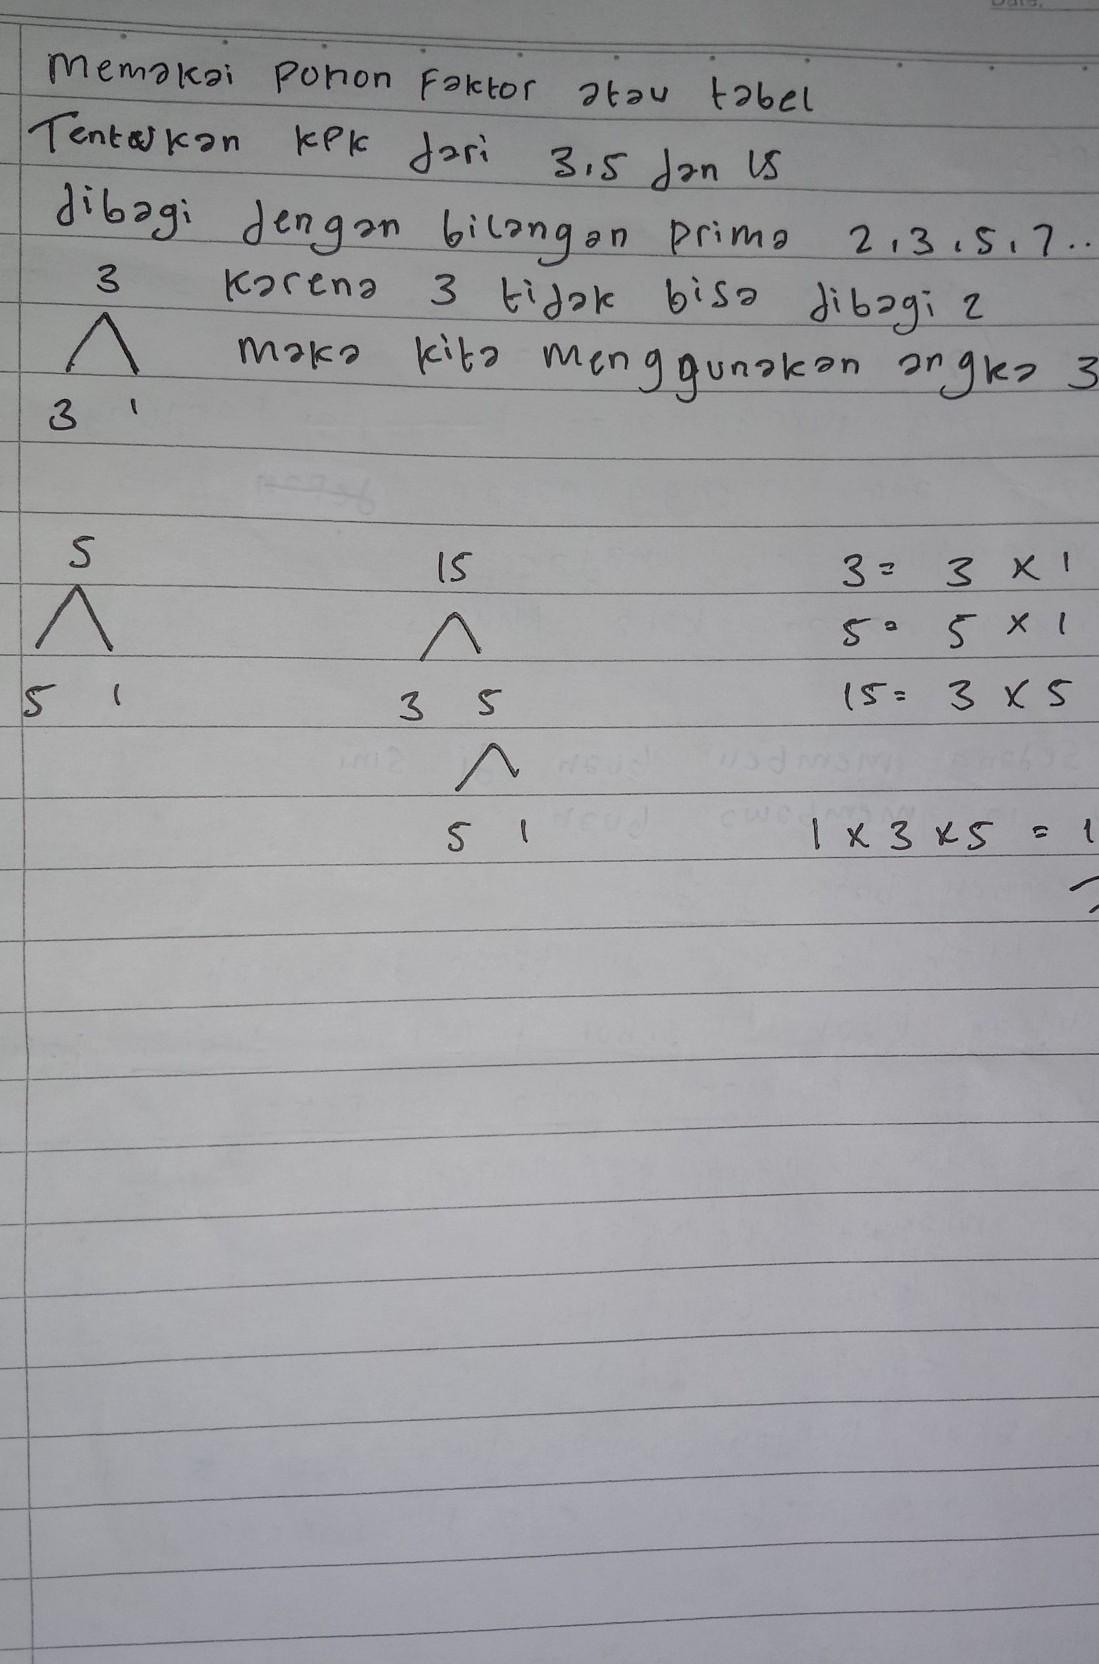 Memakai Pohon Faktor atau tabel
Tentukan KPK dari 3,5 dan 15
dibagi dengan bilangan prima 2,3,5,7..
3 Karena 3 tidak bisa dibagi 2
maka kita menggunakan angka 3
3 1
5 15 3 = 3 x 1
5 = 5 x 1
5 1 3 5 15 = 3 x 5
5 1 1 x 3 x 5 = 1